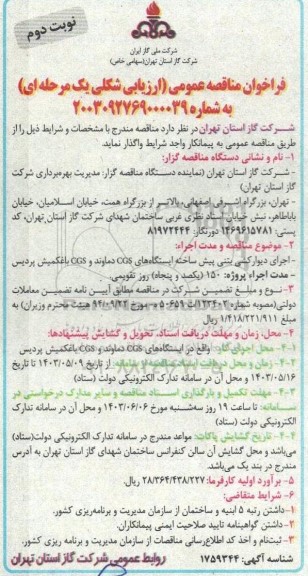 نوبت دوم
شرکت ملی گاز ایران
شرکت گاز استان تهران(سهامی خاص)
فراخوان مناقصه عمومی (ارزیابی شکلی یک مرحله ای)
به شماره ۲۰۰۳۰۹۲۷۶۹۰۰۰۰۳۹
شرکت گاز استان تهران در نظر دارد مناقصه مندرج با مشخصات و شرایط ذیل را از
طریق مناقصه عمومی به پیمانکار واجد شرایط واگذار نماید.
۱- نام و نشانی دستگاه مناقصه گزار:
- شرکت گاز استان تهران (نماینده دستگاه مناقصه گزار: مدیریت بهره‌برداری شرکت
گاز استان تهران)
- تهران، بزرگراه اشرفی اصفهانی، بالاتر از بزرگراه همت، خیابان اسلامیان، خیابان
باباطاهر، نبش خیابان استاد نظری غربی ساختمان شهدای شرکت گاز استان تهران، کد
پستی: ۱۴۶۹۶۱۵۷۸۱ دورنگار: ۸۱۹۷۲۴۴۴
۲- موضوع مناقصه و مدت اجراء:
- اجرای دیوارکشی بتنی پیش ساخته ایستگاه‌های CGS دماوند و CGS باغکمیش پردیس
- مدت اجراء پروژه: ۱۵۰ (یکصد و پنجاه) روز تقویمی
۳- نوع و مبلغ تضمین شرکت در مناقصه مطابق آیین نامه تضمین معاملات
دولتی(مصوبه شماره ۱۲۳۴۰۲/ت۵۰۶۵۹ه مورخ ۹۴/۰۹/۲۲ هیئت محترم وزیران) به
مبلغ ۱/۴۱۸/۲۲۱/۹۱۱ ریال
۴- محل، زمان و مهلت دریافت اسناد، تحویل و گشایش پیشنهادها:
۴-۱- محل اجرای کار: واقع در ایستگاه‌های CGS دماوند و CGS باغکمیش پردیس
۴-۲- محل و زمان دریافت اسناد مناقصه از سامانه: از تاریخ ۱۴۰۳/۰۵/۰۹ تا تاریخ
۱۴۰۳/۰۵/۱۶ و محل آن در سامانه تدارک الکترونیکی دولت (ستاد)
۴-۳- مهلت تکمیل و بارگذاری اسناد مناقصه و سایر مدارک درخواستی در
سامانه: تا ساعت ۱۹ روز سه‌شنبه مورخ ۱۴۰۳/۰۶/۰۶ و محل آن در سامانه تدارک
الکترونیکی دولت (ستاد)
۴-۴- تاریخ گشایش پاکات: مواعد مندرج در سامانه تدارک الکترونیکی دولت(ستاد)
می‌باشد و محل گشایش آن سالن کنفرانس ساختمان شهدای گاز استان تهران به آدرس
مندرج در بند یک می‌باشد.
۵- برآورد اولیه کارفرما: ۲۸/۳۶۴/۴۳۸/۲۲۷ ریال
۶- شرایط متقاضی:
۱- داشتن رتبه ۵ ابنیه و ساختمان از سازمان مدیریت و برنامه‌ریزی کشور.
۲- داشتن گواهینامه تایید صلاحیت ایمنی پیمانکاران.
۳- ثبت‌نام و اخذ کد اطلاع‌رسانی مناقصات از سازمان مدیریت و برنامه ریزی کشور.
شناسه آگهی: ۱۷۵۹۳۴۴ روابط عمومی شرکت گاز استان تهران